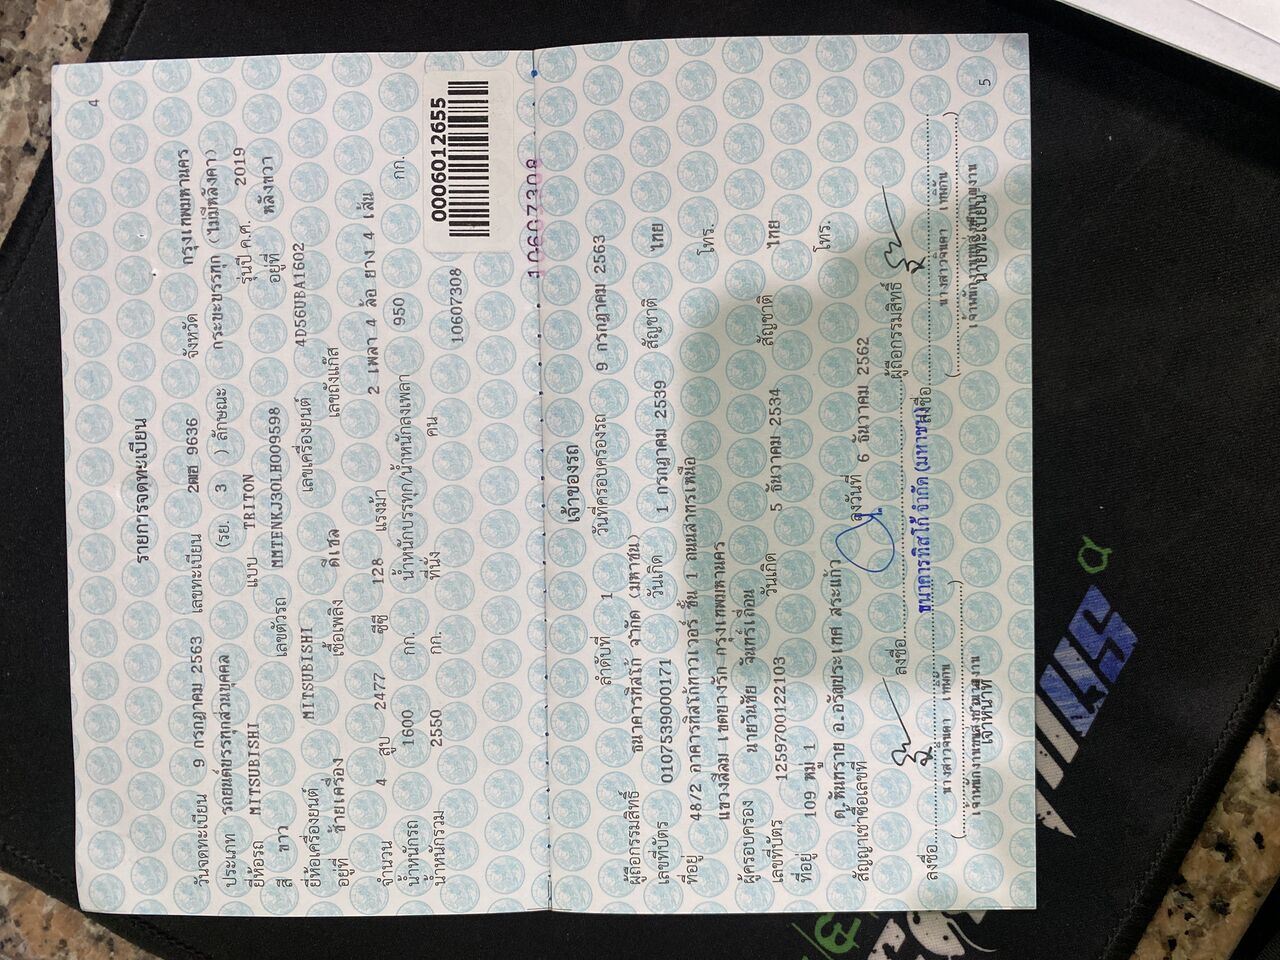 4
รายการจดทะเบียน
วันจดทะเบียน 9 กรกฎาคม 2563 เลขทะเบียน 2ฒฮ 9636 จังหวัด กรุงเทพมหานคร
ประเภท รถยนต์บรรทุกส่วนบุคคล (รย. 3 ) ลักษณะ กระบะบรรทุก (ไม่มีหลังคา)
ยี่ห้อรถ MITSUBISHI แบบ TRITON รุ่นปี ค.ศ. 2019
สี ขาว เลขตัวรถ MMTENKJ30LH009598 อยู่ที่ หลังขวา
ยี่ห้อเครื่องยนต์ MITSUBISHI เลขเครื่องยนต์ 4D56UBA1602
อยู่ที่ ซ้ายเครื่อง เชื้อเพลิง ดีเซล เลขถังแก๊ส
จำนวน 4 สูบ 2477 ซีซี 128 แรงม้า 2 เพลา 4 ล้อ ยาง 4 เส้น
น้ำหนักรถ 1600 กก. น้ำหนักบรรทุก/น้ำหนักลงเพลา 950 กก.
น้ำหนักรวม 2550 กก. ที่นั่ง คน 10607308
0006012655
10607308
เจ้าของรถ
ลำดับที่ 1 วันที่ครอบครองรถ 9 กรกฎาคม 2563
ผู้ถือกรรมสิทธิ์ ธนาคารทิสโก้ จำกัด (มหาชน)
เลขที่บัตร 0107539000171 วันเกิด 1 กรกฎาคม 2539 สัญชาติ ไทย
ที่อยู่ 48/2 อาคารทิสโก้ทาวเวอร์ ชั้น 1 ถนนสาทรเหนือ
แขวงสีลม เขตบางรัก กรุงเทพมหานคร โทร.
ผู้ครอบครอง นายวันชัย จันทร์เถื่อน
เลขที่บัตร 1259700122103 วันเกิด 5 ธันวาคม 2534 สัญชาติ ไทย
ที่อยู่ 109 หมู่ 1
ต.ทับทราย อ.อรัญประเทศ สระแก้ว โทร.
สัญญาเช่าซื้อเลขที่ ลงวันที่ 6 ธันวาคม 2562
ลงชื่อ ผู้ถือกรรมสิทธิ์
ธนาคารทิสโก้ จำกัด (มหาชน)
ลงชื่อ ลงชื่อ
นางสาวจินดา นางสาวจินดา
เจ้าหน้าที่ นายทะเบียน
5